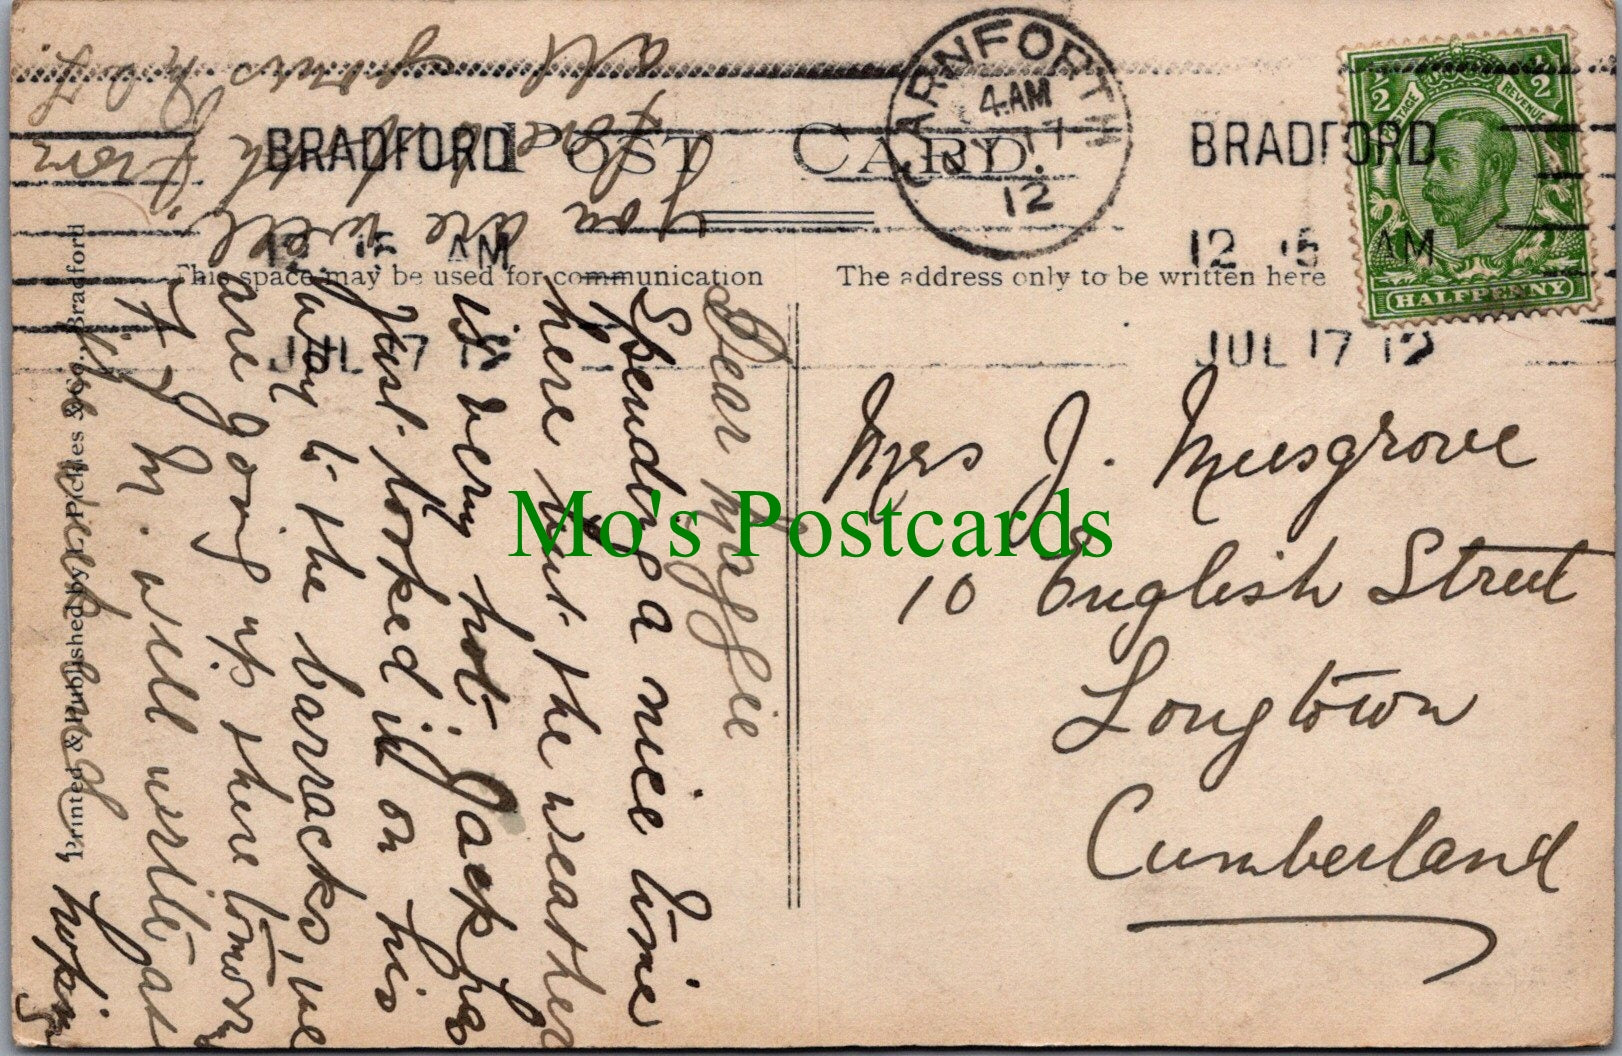 POST CARD.
This space may be used for communication
The address only to be written here
Printed & Published by Pickles & Co., Bradford
BRADFORD
12 15 AM
JUL 17 12
BRADFORD
12 15 AM
JUL 17 12
CARNFORTH
4.AM
JY 17
12
POSTAGE
REVENUE
1/2
1/2
HALFPENNY
Mrs J. Musgrove
10 English Street
Longtown
Cumberland
Dear Maggie
Spending a nice time
here but the weather
is very hot. Jack has
just looked in on his
way to the barracks, we
are going up there tomorrow
F. M. will write as
hoping
you are well,
love
with
from
all yours
Mo's Postcards